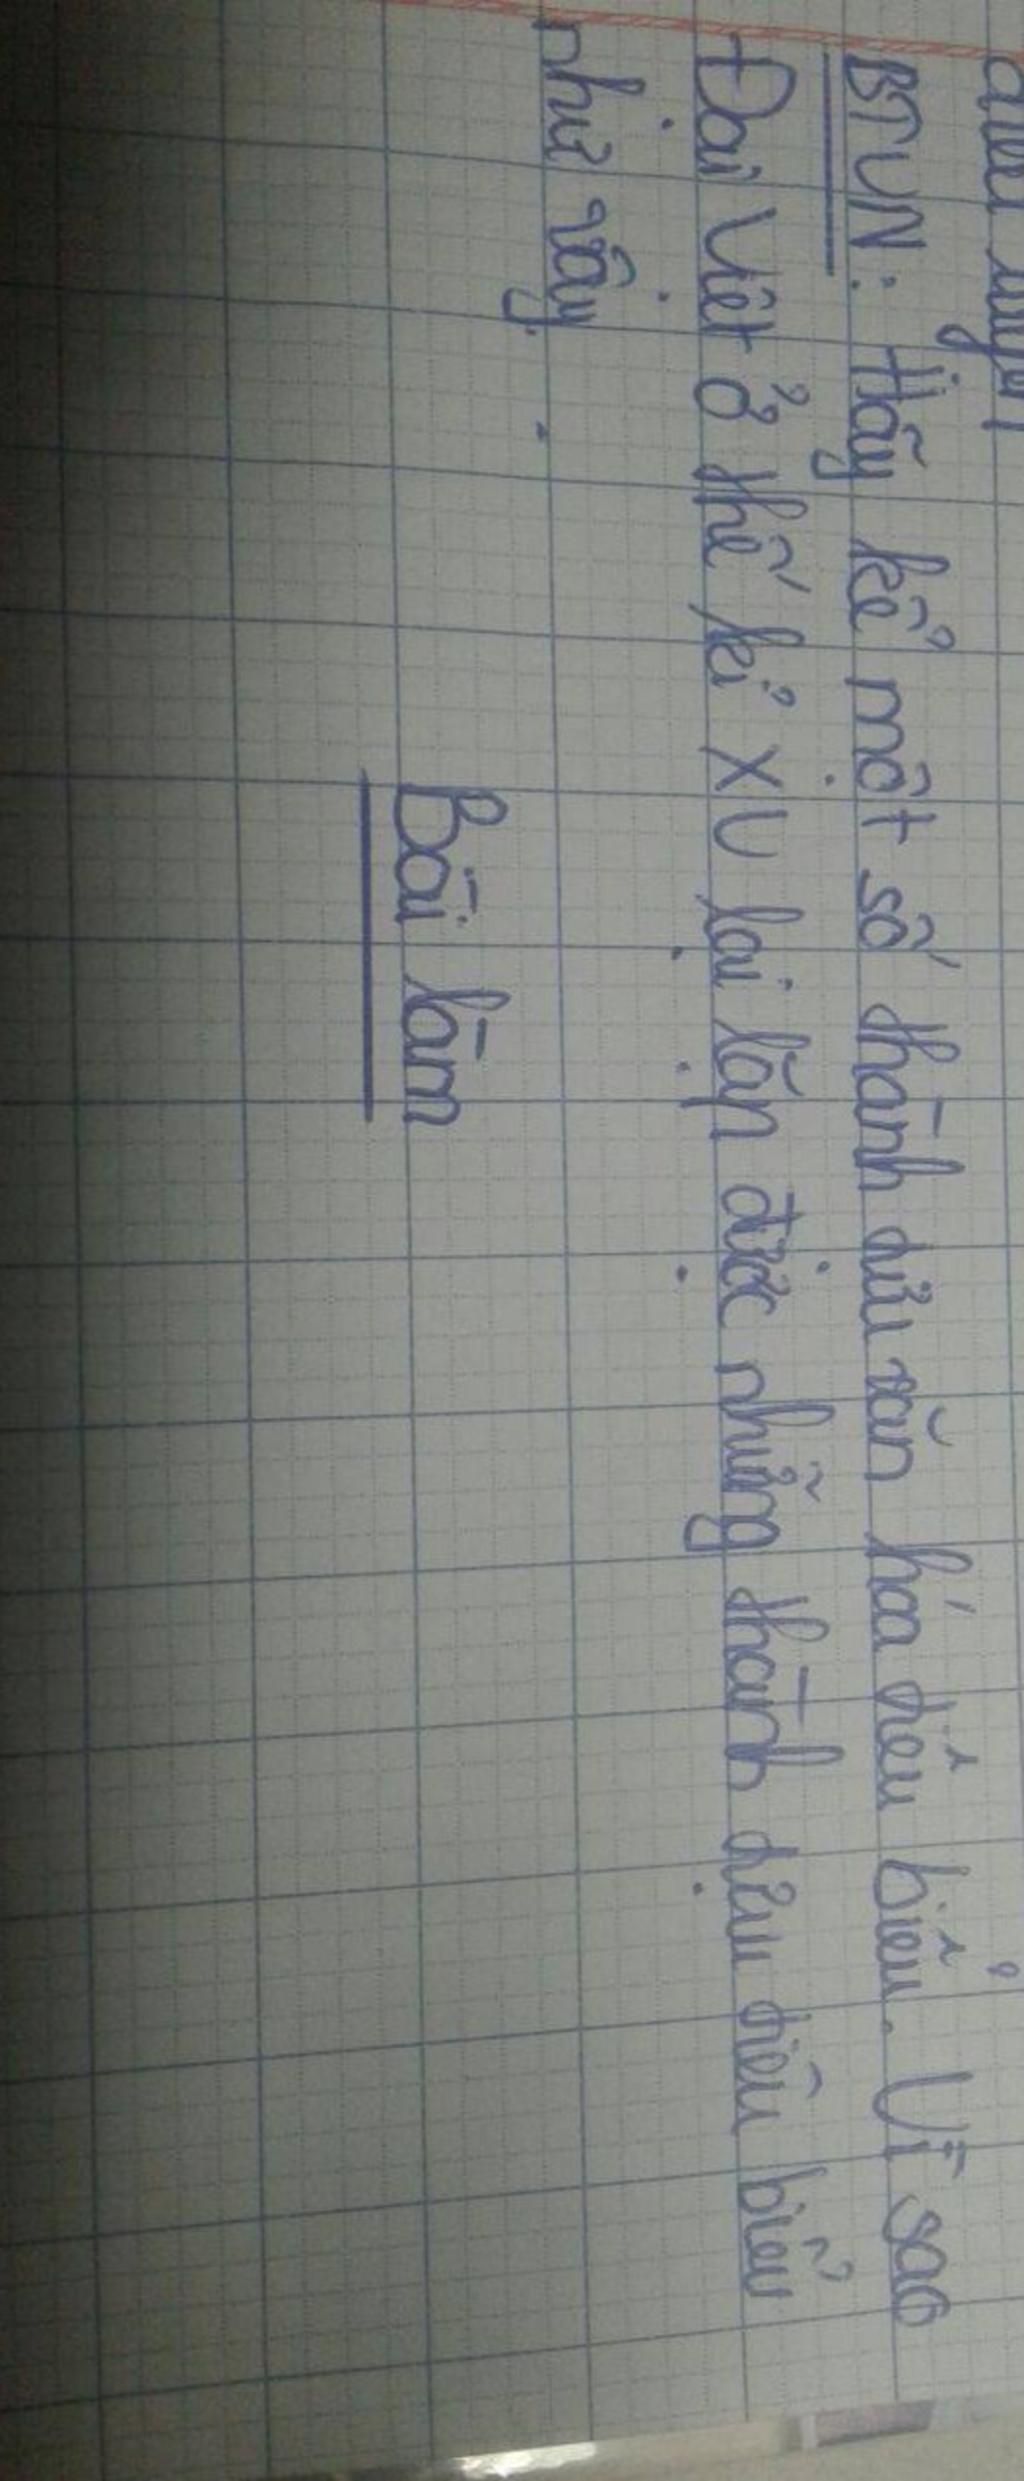 BTVN: Hãy kể một số thành tựu văn hóa tiêu biểu. Vì sao
Đại Việt ở thế kỉ XV lại lập được những thành tựu tiêu biểu
như vậy.
Bài làm